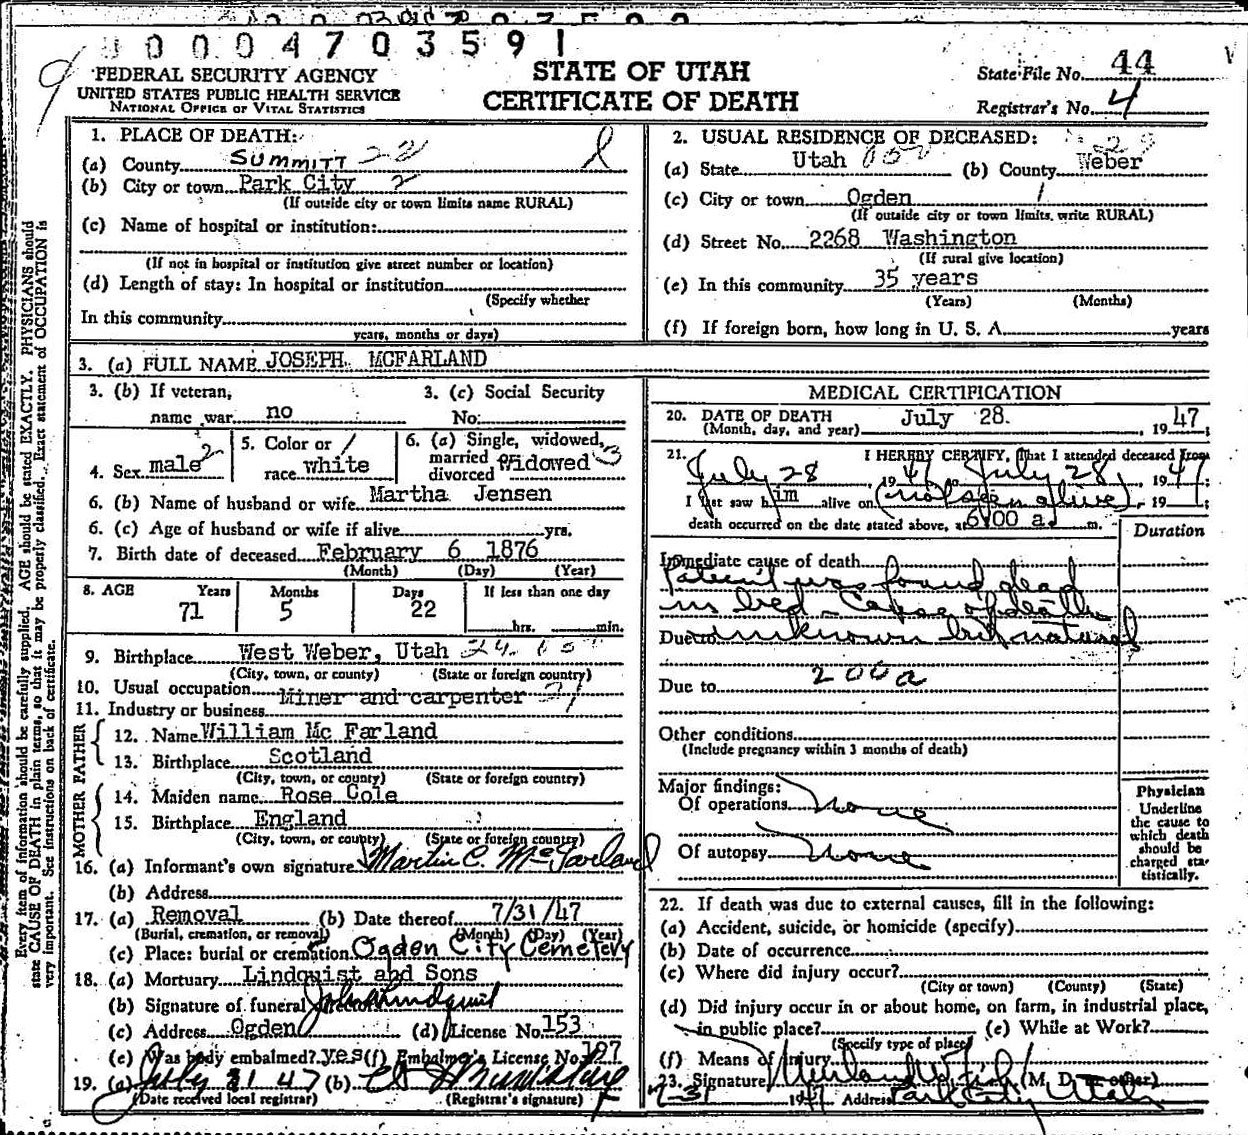 0 0 0 4 7 0 3 5 9 1
FEDERAL SECURITY AGENCY
UNITED STATES PUBLIC HEALTH SERVICE
NATIONAL OFFICE OF VITAL STATISTICS
STATE OF UTAH
CERTIFICATE OF DEATH
State File No. 44
Registrar's No. 4
Every item of information should be carefully supplied. AGE should be stated EXACTLY. PHYSICIANS should
state CAUSE OF DEATH in plain terms, so that it may be properly classified. Exact statement of OCCUPATION is
very important. See instructions on back of certificate.
1. PLACE OF DEATH:
(a) County SUMMITT 22
(b) City or town Park City 2
(If outside city or town limits name RURAL)
(c) Name of hospital or institution:
(If not in hospital or institution give street number or location)
(d) Length of stay: In hospital or institution
(Specify whether
In this community
years, months or days)
2. USUAL RESIDENCE OF DECEASED: 29
(a) State Utah (b) County Weber
(c) City or town Ogden 1
(If outside city or town limits, write RURAL)
(d) Street No. 2268 Washington
(If rural give location)
(e) In this community 35 years
(Years) (Months)
(f) If foreign born, how long in U. S. A. years
3. (a) FULL NAME JOSEPH MCFARLAND
3. (b) If veteran,
name war no
3. (c) Social Security
No.
4. Sex male 2
5. Color or /
race white
6. (a) Single, widowed,
married
divorced Widowed 3
6. (b) Name of husband or wife Martha Jensen
6. (c) Age of husband or wife if alive yrs.
7. Birth date of deceased February 6 1876
(Month) (Day) (Year)
8. AGE Years Months Days If less than one day
71 5 22 hrs. min.
9. Birthplace West Weber, Utah 24
(City, town, or county) (State or foreign country)
10. Usual occupation Miner and carpenter
11. Industry or business
FATHER
12. Name William Mc Farland
13. Birthplace Scotland
(City, town, or county) (State or foreign country)
MOTHER
14. Maiden name Rose Cole
15. Birthplace England
(City, town, or county) (State or foreign country)
16. (a) Informant's own signature Martin C. McFarland
(b) Address
17. (a) Removal (b) Date thereof 7/31/47
(Burial, cremation, or removal) (Month) (Day) (Year)
(c) Place: burial or cremation Ogden City Cemetery
18. (a) Mortuary Lindquist and Sons
(b) Signature of funeral director John Lindquist
(c) Address Ogden (d) License No. 153
(e) Was body embalmed? yes (f) Embalmer's License No. 127
19. (a) July 31 47 (b)
(Date received local registrar) (Registrar's signature)
MEDICAL CERTIFICATION
20. DATE OF DEATH July 28. 1947;
(Month, day, and year)
21. I HEREBY CERTIFY, That I attended deceased from
July 28 1947 to July 28, 1947;
I last saw him alive on (not seen alive), 19 ;
death occurred on the date stated above, at 6:00 a m.
Duration
Immediate cause of death
Patient was found dead
in bed - Cause of death
Due to unknown but natural
200a
Due to
Other conditions
(Include pregnancy within 3 months of death)
Major findings:
Of operations None
Of autopsy None
Physician
Underline
the cause to
which death
should be
charged sta-
tistically.
22. If death was due to external causes, fill in the following:
(a) Accident, suicide, or homicide (specify)
(b) Date of occurrence
(c) Where did injury occur?
(City or town) (County) (State)
(d) Did injury occur in or about home, on farm, in industrial place,
in public place? (e) While at Work?
(Specify type of place)
(f) Means of Injury
23. Signature (M. D. or other)
7-31 1947 Address Park City Utah